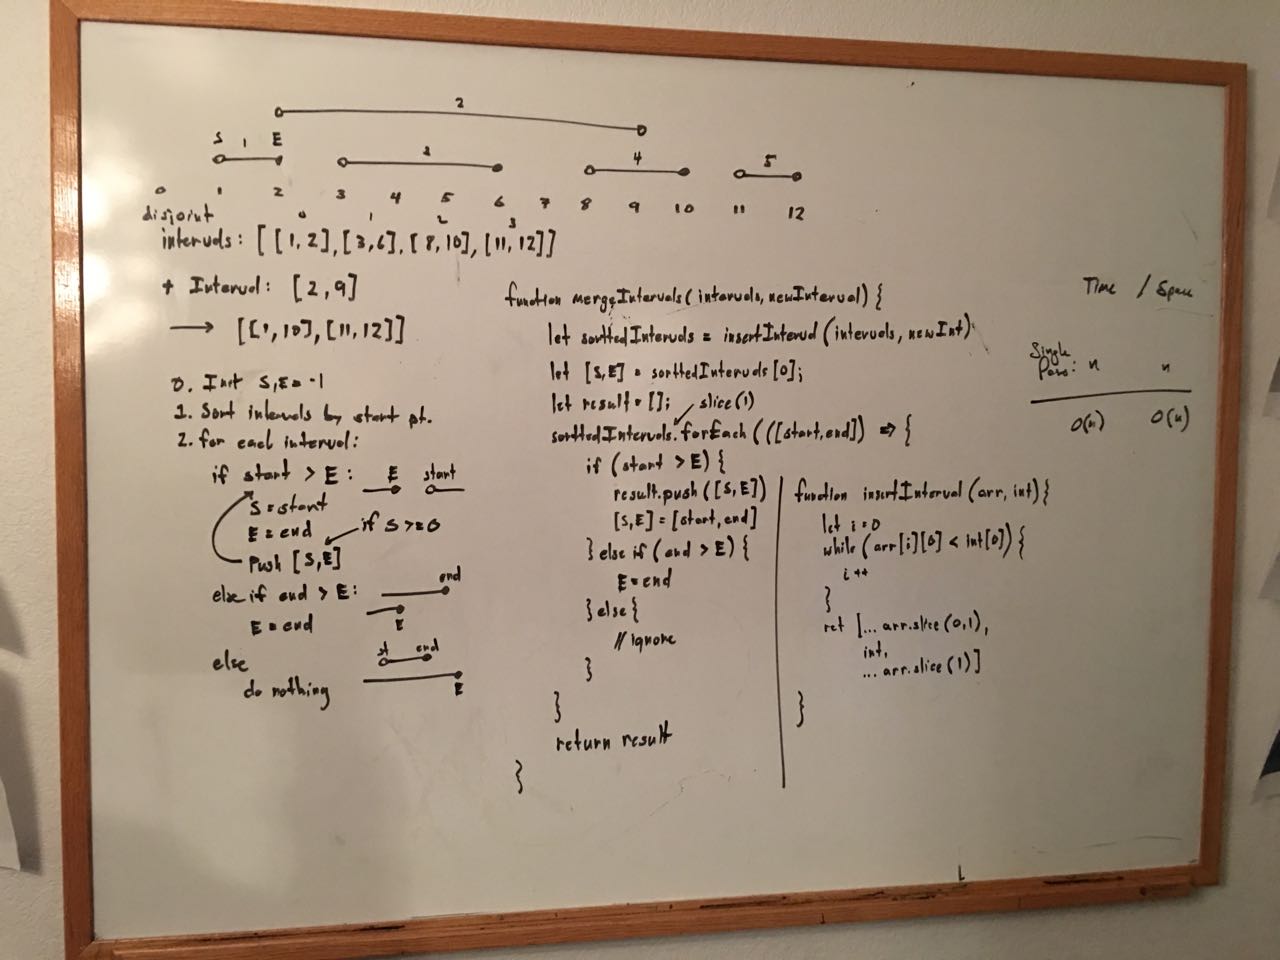 2
S 1 E
3 4 5
0 1 2 3 4 5 6 7 8 9 10 11 12
disjoint
0 1 2 3
intervals: [[1,2],[3,6],[8,10],[11,12]]
+ Interval: [2,9]
→ [[1,10],[11,12]]
0. Init S,E = -1
1. Sort intervals by start pt.
2. for each interval:
if start > E: E start
S = start
E = end if S >= 0
Push [S,E]
else if end > E: end
E = end E
else st end
do nothing E
function mergeIntervals(intervals, newInterval) {
let sorttedIntervals = insertInterval(intervals, newInt);
let [S,E] = sorttedIntervals[0];
let result = []; slice(1)
sorttedIntervals.forEach(([start,end]) => {
if (start > E) {
result.push([S,E])
[S,E] = [start,end]
} else if (end > E) {
E = end
} else {
// ignore
}
}
return result
}
function insertInterval(arr, int) {
let i = 0
while (arr[i][0] < int[0]) {
i++
}
ret [... arr.slice(0,1),
int,
... arr.slice(1)]
}
Time / Space
Single
Pass: n n
O(n) O(n)